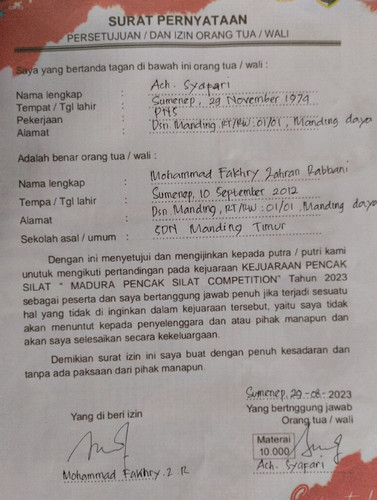 SURAT PERNYATAAN
PERSETUJUAN / DAN IZIN ORANG TUA / WALI
Saya yang bertanda tagan di bawah ini orang tua / wali :
Nama lengkap : Ach. Syapari
Tempat / Tgl lahir : Sumenep, 29 November 1979
Pekerjaan : PNS
Alamat : Dsn Manding RT/RW : 01/01, Manding daya
Adalah benar orang tua / wali :
Nama lengkap : Mohammad Fakhry Zahran Rabbani
Tempa / Tgl lahir : Sumenep, 10 September 2012
Alamat : Dsn Manding, RT/RW : 01/01, Manding daya
Sekolah asal / umum : SDN Manding Timur
Dengan ini menyetujui dan mengijinkan kepada putra / putri kami
unutuk mengikuti pertandingan pada kejuaraan KEJUARAAN PENCAK
SILAT " MADURA PENCAK SILAT COMPETITION" Tahun 2023
sebagai peserta dan saya bertanggung jawab penuh jika terjadi sesuatu
hal yang tidak di inginkan dalam kejuaraan tersebut, yaitu saya tidak
akan menuntut kepada penyelenggara dan atau pihak manapun dan
akan saya selesaikan secara kekeluargaan.
Demikian surat izin ini saya buat dengan penuh kesadaran dan
tanpa ada paksaan dari pihak manapun.
Sumenep, 29-08-2023
Yang di beri izin
Yang bertnggung jawab
Orang tua / wali
Materai
10.000
Mohammad Fakhry. Z. R
Ach. Syapari